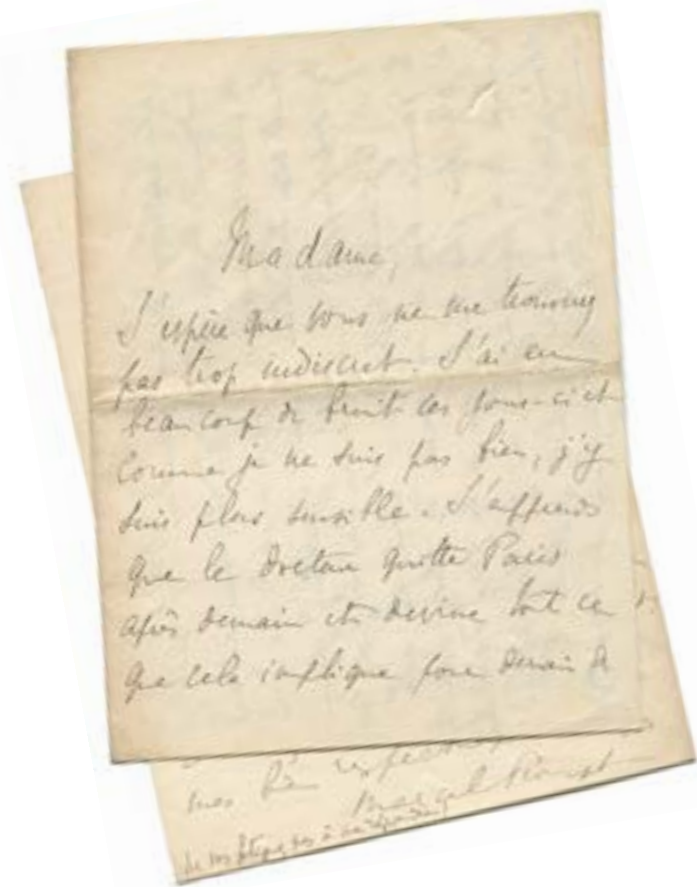 Madame,
J'espère que vous ne me trouverez
pas trop indiscret. J'ai eu
beaucoup de bruit ces jours-ci et
comme je ne suis pas bien, j'y
suis plus sensible. J'apprends
que le docteur quitte Paris
après demain et devine tout ce
que cela implique pour demain de
mes bien respectueux
Marcel Proust